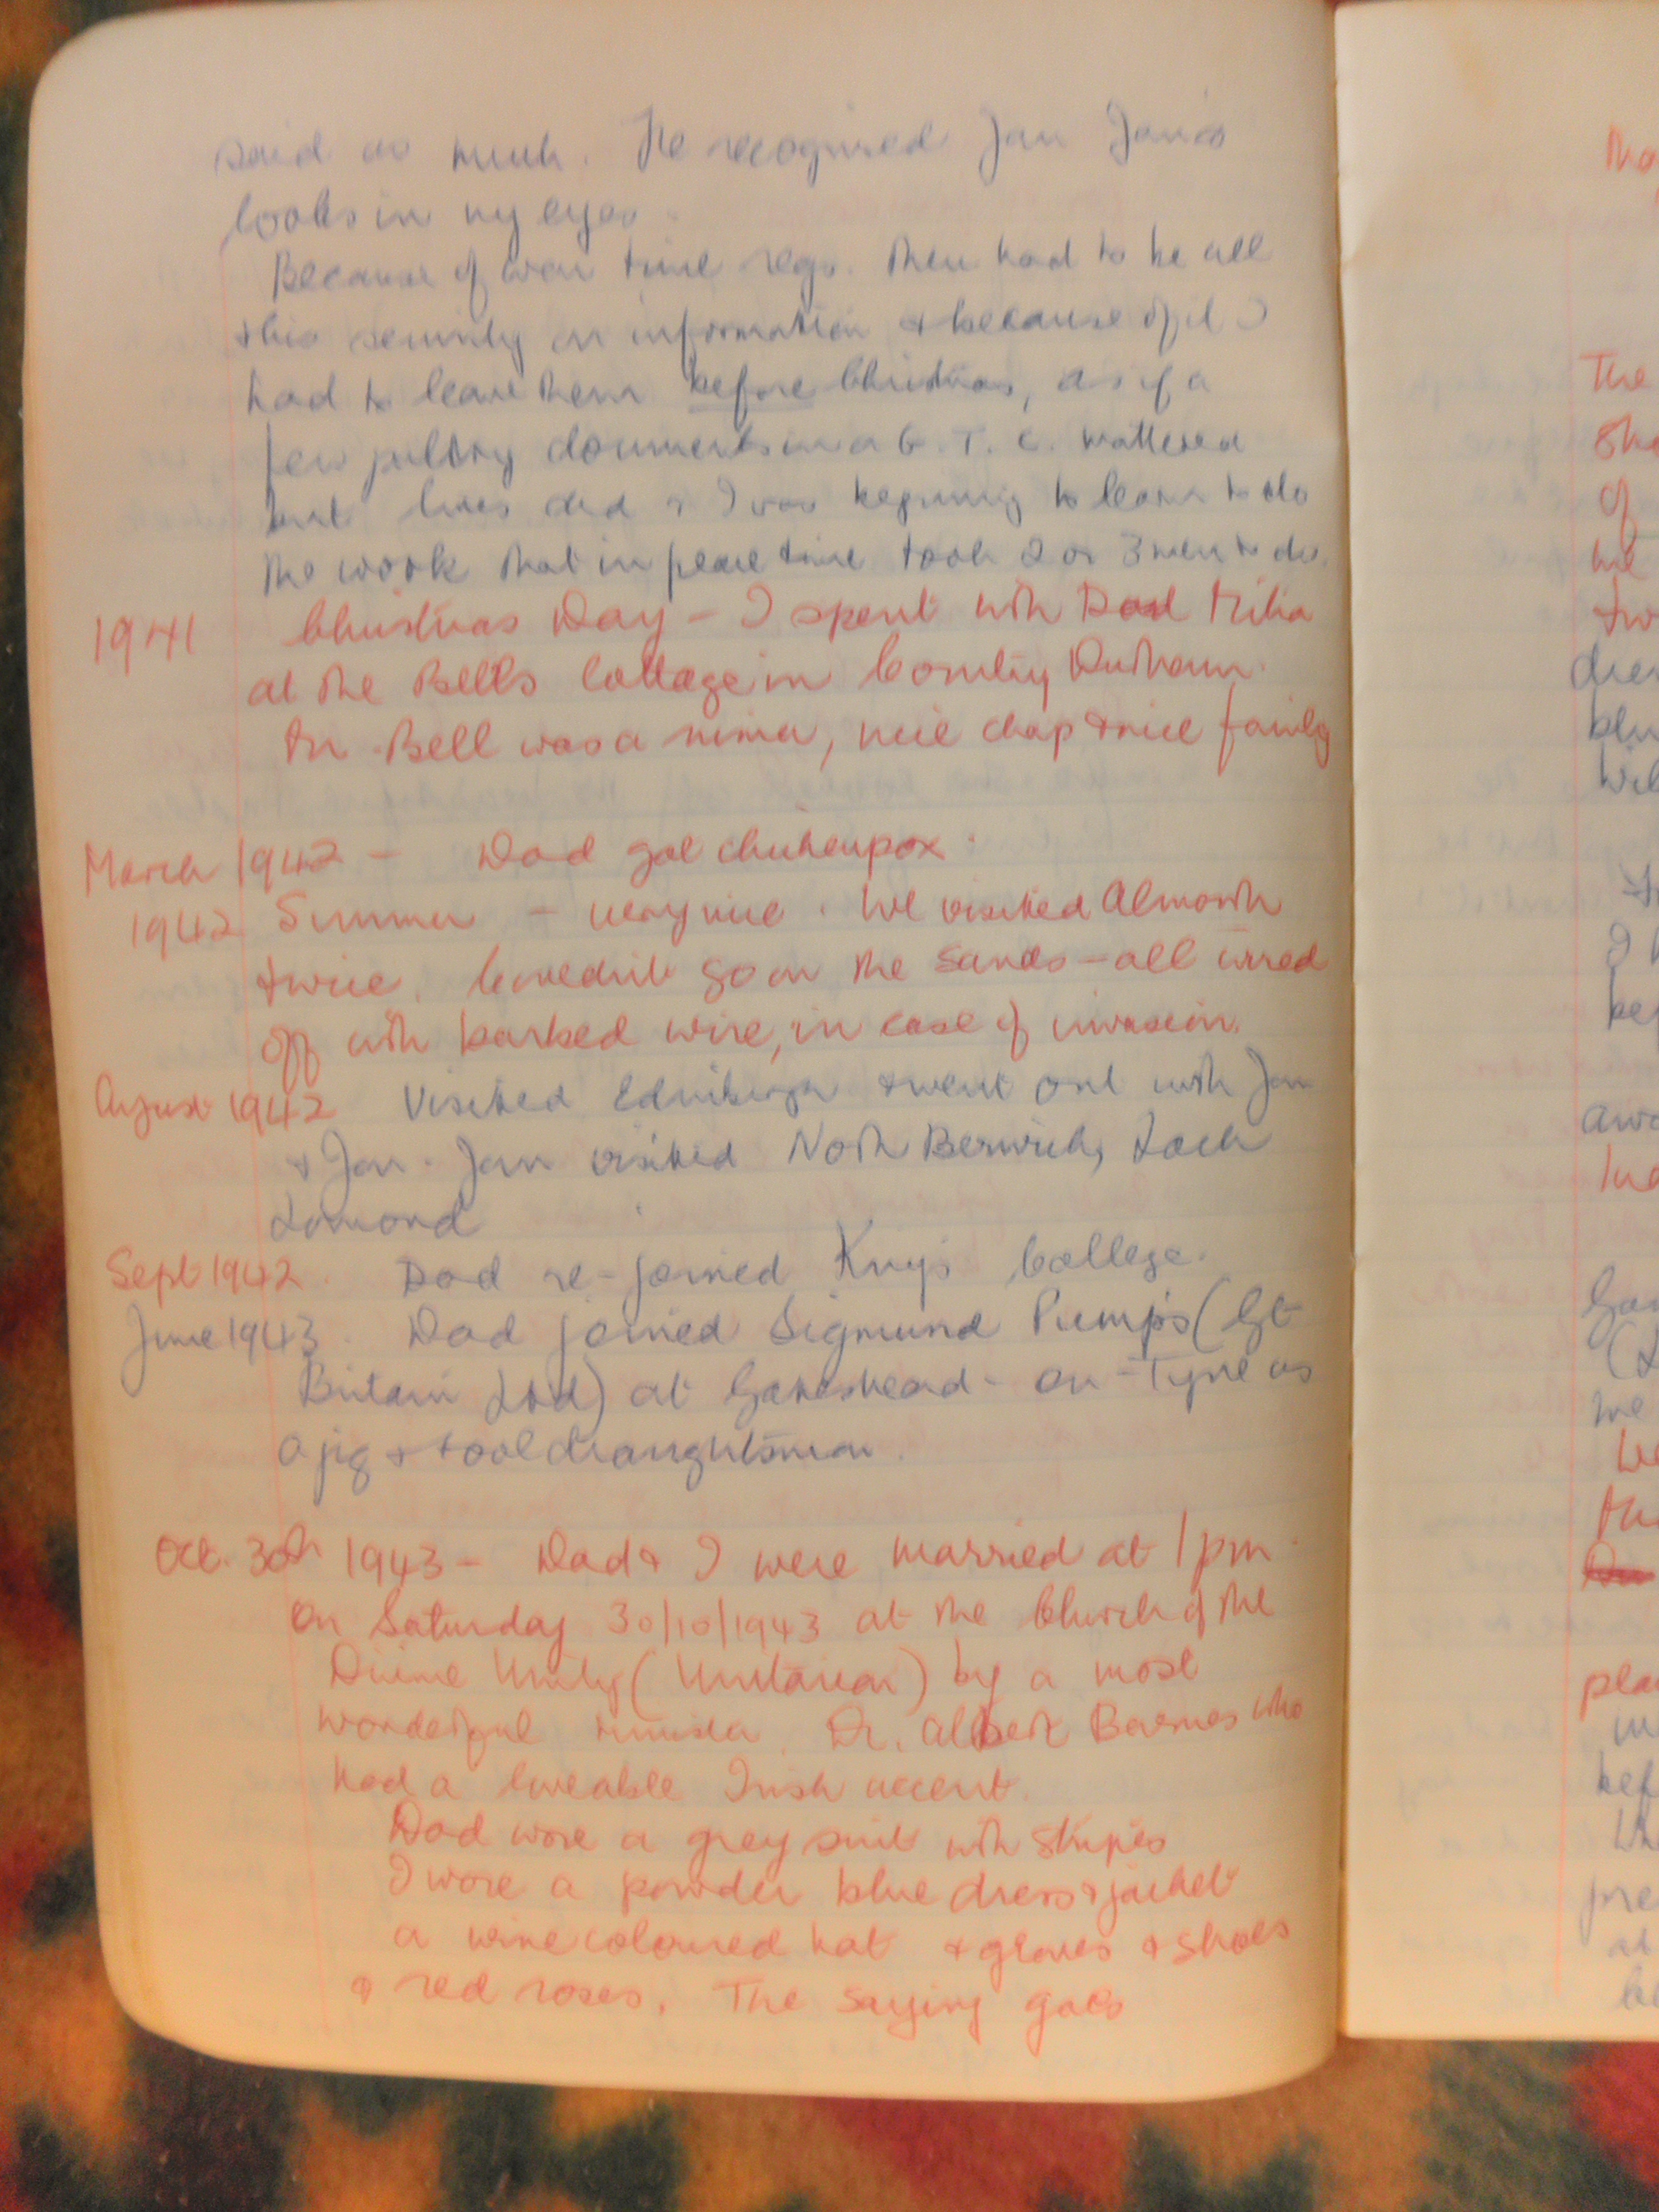 said as much. He recognised Jan Jan's
looks in my eyes.
Because of war time regs. there had to be all
this security on information & because of it I
had to leave them before Christmas, as if a
few paltry documents in a G.T.C. mattered
but lives did & I was beginning to learn to do
the work that in peace time took 2 or 3 men to do.
1941 Christmas Day - I spent with Dad
at the Bells Cottage in County Durham.
Mr Bell was a miner, nice chap & nice family
March 1942 - Dad got chickenpox.
1942 Summer - very nice. We visited Alnmouth
twice. go on the sands - all wired
off with barbed wire, in case of invasion.
August 1942 Visited Edinburgh & went out with Jan
& Jan. Jan visited North Berwick, Loch
Lomond
Sept 1942. Dad re-joined King's College.
June 1943. Dad joined Sigmund Pumps (Gt
Britain Ltd) at Gateshead-on-Tyne as
a jig & tool draughtsman.
Oct. 30th 1943 - Dad & I were married at 1pm.
on Saturday 30/10/1943 at the Church of the
Divine Unity (Unitarian) by a most
wonderful minister Dr. Albert Barnes who
had a loveable Irish accent.
Dad wore a grey suit with stripes
I wore a powder blue dress & jacket
a wine coloured hat & gloves & shoes
& red roses. The saying goes